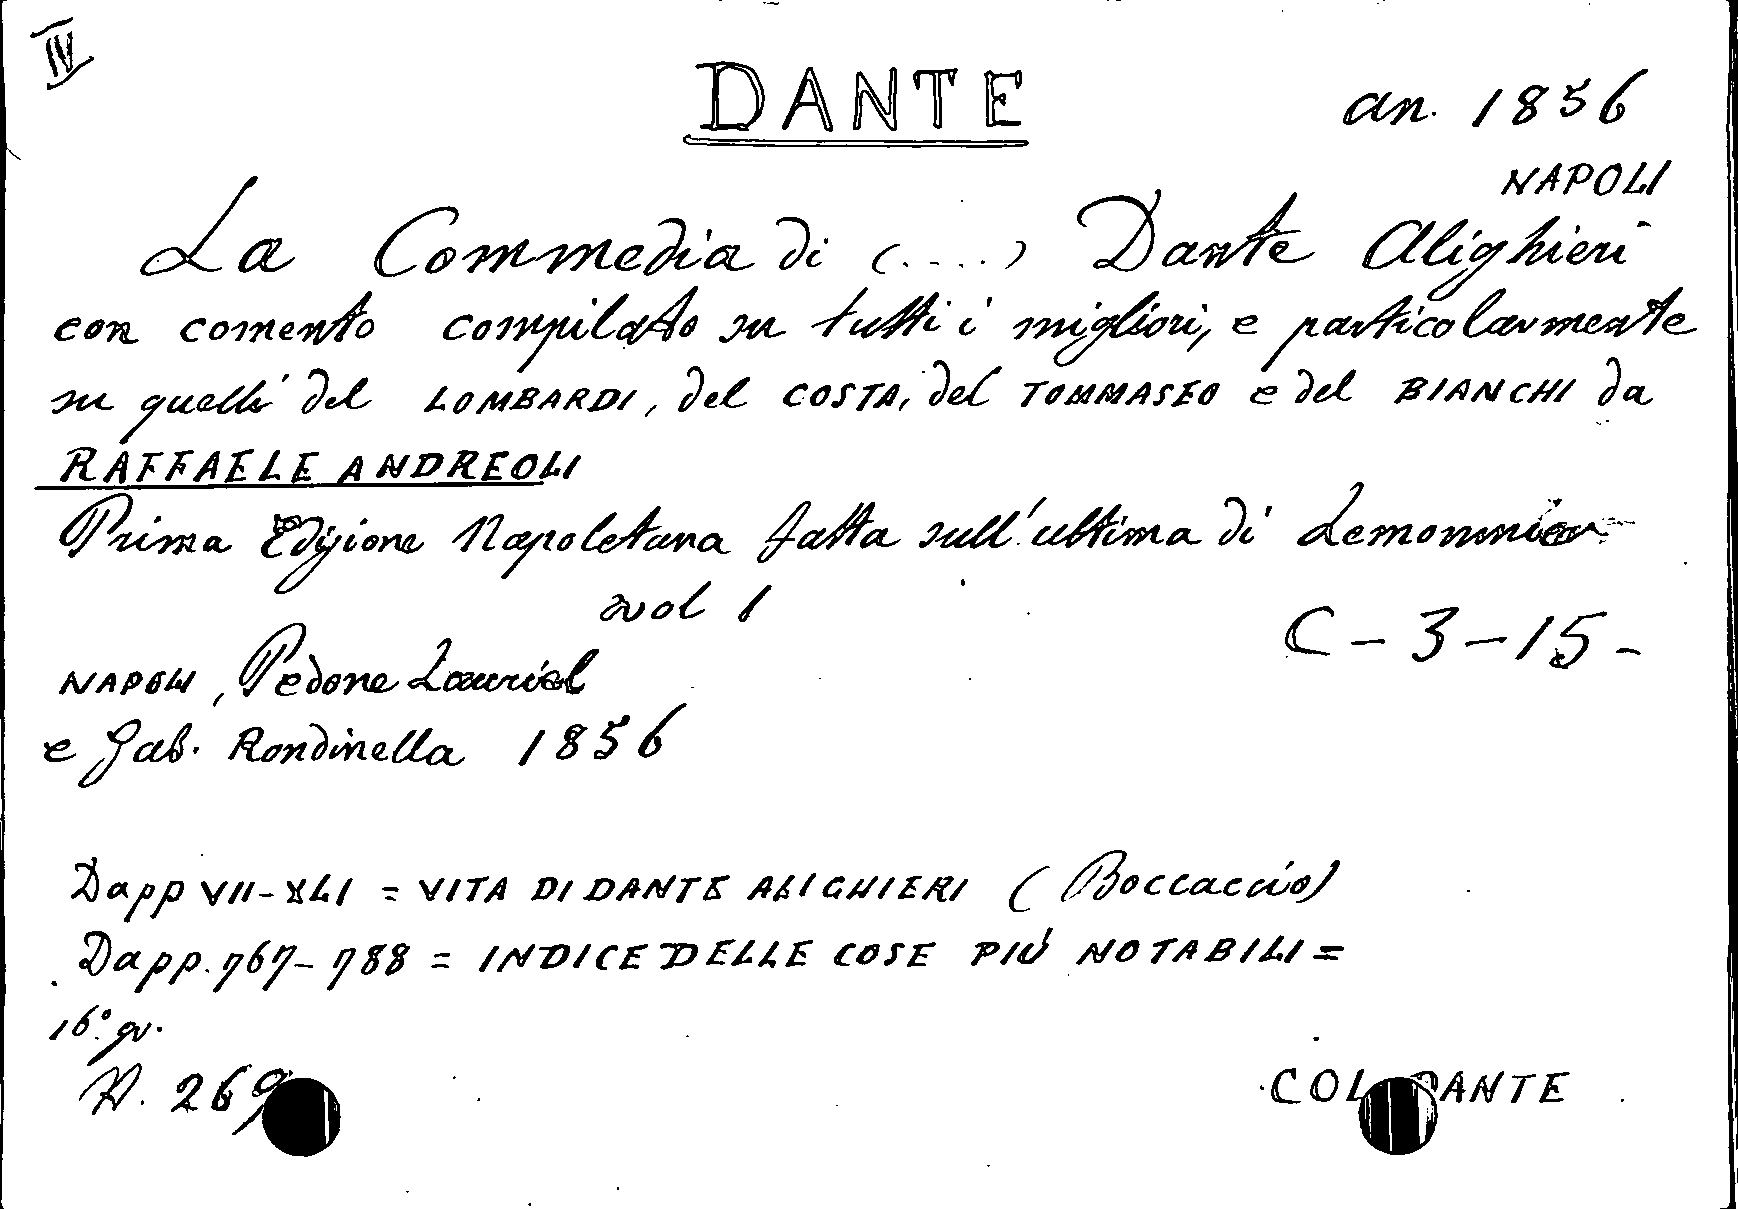 IV
DANTE
an. 1856
NAPOLI
La Commedia di (....) Dante Alighieri
con comento compilato su tutti i migliori, e particolarmente
su quelli del LOMBARDI, del COSTA, del TOMMASEO e del BIANCHI da
RAFFAELE ANDREOLI
Prima Edizione Napoletana fatta sull'ultima di Lemonnier
vol 1
C - 3 - 15 -
NAPOLI, Pedone Lauriel
e Gab. Rondinella 1856
Da pp VII - XLI = VITA DI DANTE ALIGHIERI (Boccaccio)
Da pp. 767 - 788 = INDICE DELLE COSE PIÚ NOTABILI =
16° gr.
N. 269
COL DANTE